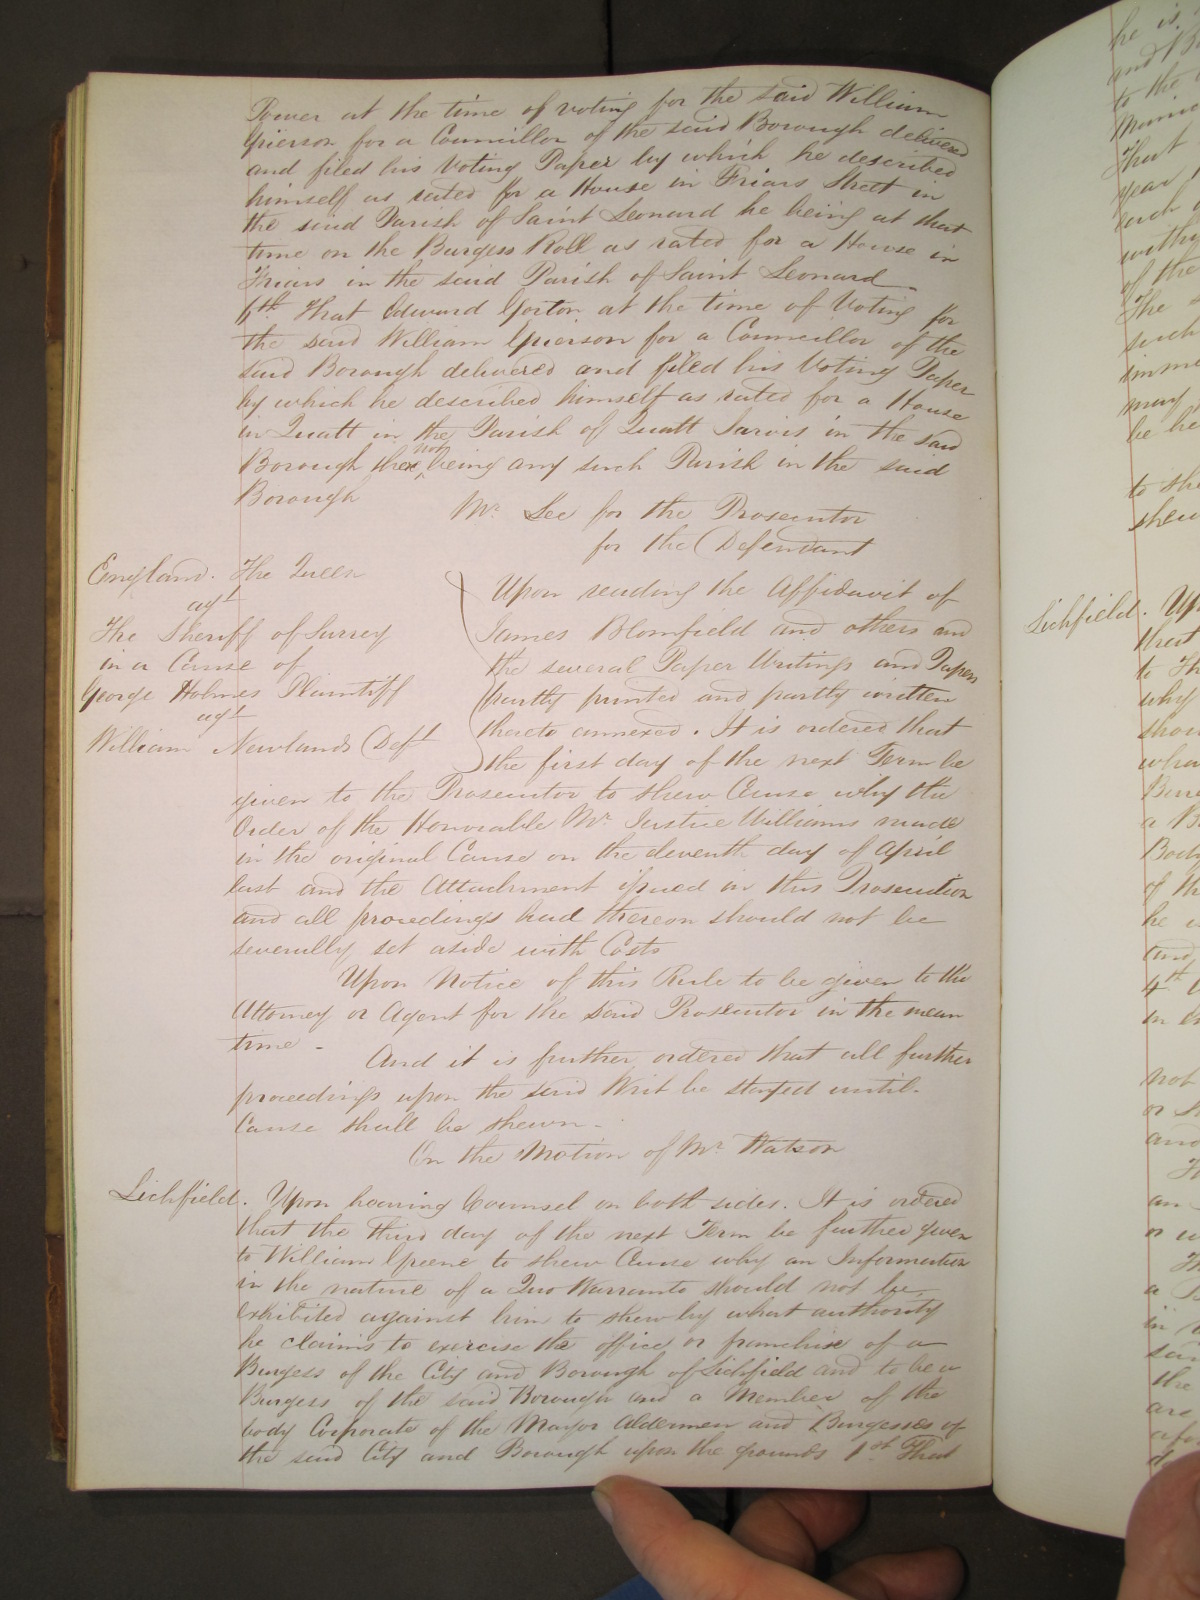 Tower at the time of voting for the said William
Grierson for a Councillor of the said Borough delivered
and filed his Voting Paper by which he described
himself as rated for a House in Friars Street in
the said Parish of Saint Leonard he being at that
time on the Burgess Roll as rated for a House in
Friars in the said Parish of Saint Leonard
That Edward Gorton at the time of Voting for
the said William Grierson for a Councillor of the
said Borough delivered and filed his Voting Paper
by which he described himself as rated for a House
in Quatt in the Parish of Quatt Jarvis in the said
Borough there not being any such Parish in the said
Borough
Mr. Lee for the Prosecutor
for the Defendant
England. The Queen
agt
The Sheriff of Surrey
in a Cause of
George Holmes Plaintiff
agt
William Newlands Deft
Upon reading the Affidavit of
James Blomfield and others and
the several Paper Writings and Papers
partly printed and partly written
thereto annexed. It is ordered that
the first day of the next Term be
given to the Prosecutor to shew Cause why the
Order of the Honorable Mr. Justice Williams made
in the original Cause on the eleventh day of April
last and the Attachment issued in this Prosecution
and all proceedings had thereon should not be
severally set aside with Costs
Upon Notice of this Rule to be given to the
Attorney or Agent for the said Prosecutor in the mean
time -
And it is further ordered that all further
proceedings upon the said Writ be stayed until
Cause shall be shewn -
On the Motion of Mr. Watson
Lichfield. Upon hearing Counsel on both sides. It is ordered
that the third day of the next Term be further given
to William Greene to shew Cause why an Information
in the nature of a Quo Warranto should not be
exhibited against him to shew by what authority
he claims to exercise the office or franchise of a
Burgess of the City and Borough of Lichfield and to be a
Burgess of the said Borough and a Member of the
body Corporate of the Mayor Aldermen and Burgesses of
the said City and Borough upon the grounds 1st That
he is
and B
to the
That
year
such
of the
The
such
imme
may
be he
to she
shew
Lichfield. Up
that
to Th
why
shou
wha
Burg
a B
Body
of th
he
and
4th
in
not
or
and
an
or
a
in
the
are